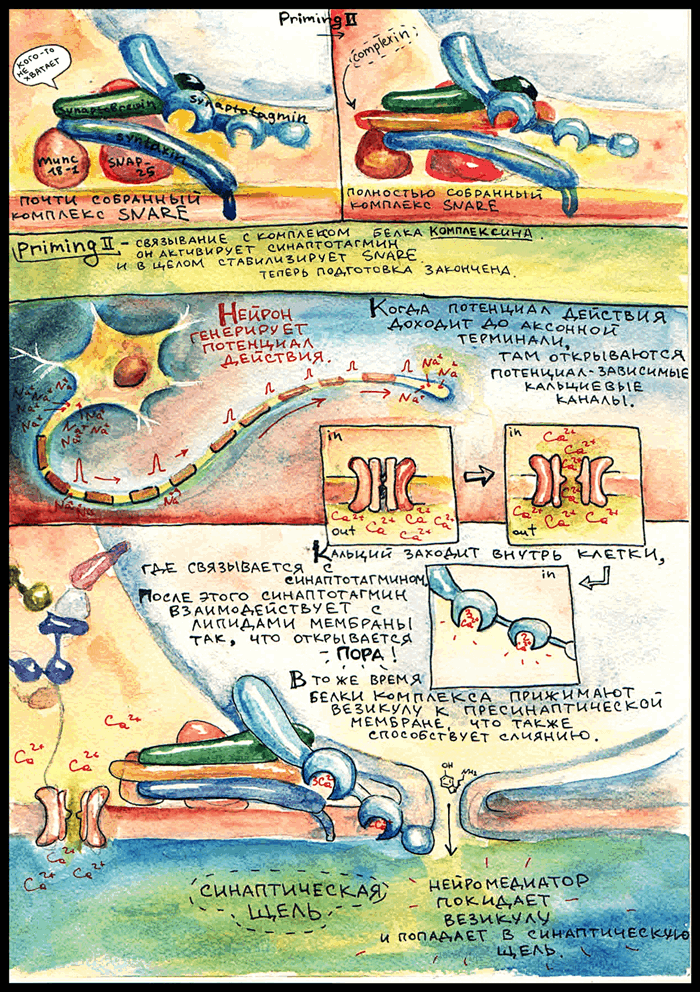 Priming II
КОГО-ТО
НЕ
ХВАТАЕТ
Synaptobrevin
Synaptotagmin
syntaxin
munc
18-1
SNAP-
25
ПОЧТИ СОБРАННЫЙ
КОМПЛЕКС SNARE
complexin
ПОЛНОСТЬЮ СОБРАННЫЙ
КОМПЛЕКС SNARE
Priming II - СВЯЗЫВАНИЕ С КОМПЛЕКОМ БЕЛКА КОМПЛЕКСИНА.
ОН АКТИВИРУЕТ СИНАПТОТАГМИН
И В ЦЕЛОМ СТАБИЛИЗИРУЕТ SNARE.
ТЕПЕРЬ ПОДГОТОВКА ЗАКОНЧЕНА.
НЕЙРОН
ГЕНЕРИРУЕТ
ПОТЕНЦИАЛ
ДЕЙСТВИЯ.
КОГДА ПОТЕНЦИАЛ ДЕЙСТВИЯ
ДОХОДИТ ДО АКСОННОЙ
ТЕРМИНАЛИ,
ТАМ ОТКРЫВАЮТСЯ
ПОТЕНЦИАЛ-ЗАВИСИМЫЕ
КАЛЬЦИЕВЫЕ
КАНАЛЫ.
Na⁺ Na⁺
Na⁺
Na⁺ Na⁺ Na⁺
Na⁺ Na⁺
Na⁺ Na⁺
Na⁺ Na⁺ Na⁺
in
Ca²⁺ Ca²⁺ Ca²⁺
out Ca²⁺ Ca²⁺
in
Ca²⁺
Ca²⁺ Ca²⁺
Ca²⁺
Ca²⁺
Ca²⁺ Ca²⁺
out Ca²⁺
КАЛЬЦИЙ ЗАХОДИТ ВНУТРЬ КЛЕТКИ,
ГДЕ СВЯЗЫВАЕТСЯ С
СИНАПТОТАГМИНОМ.
ПОСЛЕ ЭТОГО СИНАПТОТАГМИН
ВЗАИМОДЕЙСТВУЕТ С
ЛИПИДАМИ МЕМБРАНЫ
ТАК, ЧТО ОТКРЫВАЕТСЯ
ПОРА!
in
3
Ca²⁺
2
Ca²⁺
В ТО ЖЕ ВРЕМЯ
БЕЛКИ КОМПЛЕКСА ПРИЖИМАЮТ
ВЕЗИКУЛУ К ПРЕСИНАПТИЧЕСКОЙ
МЕМБРАНЕ, ЧТО ТАКЖЕ
СПОСОБСТВУЕТ СЛИЯНИЮ.
Ca²⁺
Ca²⁺
Ca²⁺
Ca²⁺
3Ca²⁺
OH
NH₂
Ca²⁺
Ca²⁺
Ca²⁺
СИНАПТИЧЕСКАЯ
ЩЕЛЬ
НЕЙРОМЕДИАТОР
ПОКИДАЕТ
ВЕЗИКУЛУ
И ПОПАДАЕТ В СИНАПТИЧЕСКУЮ
ЩЕЛЬ.